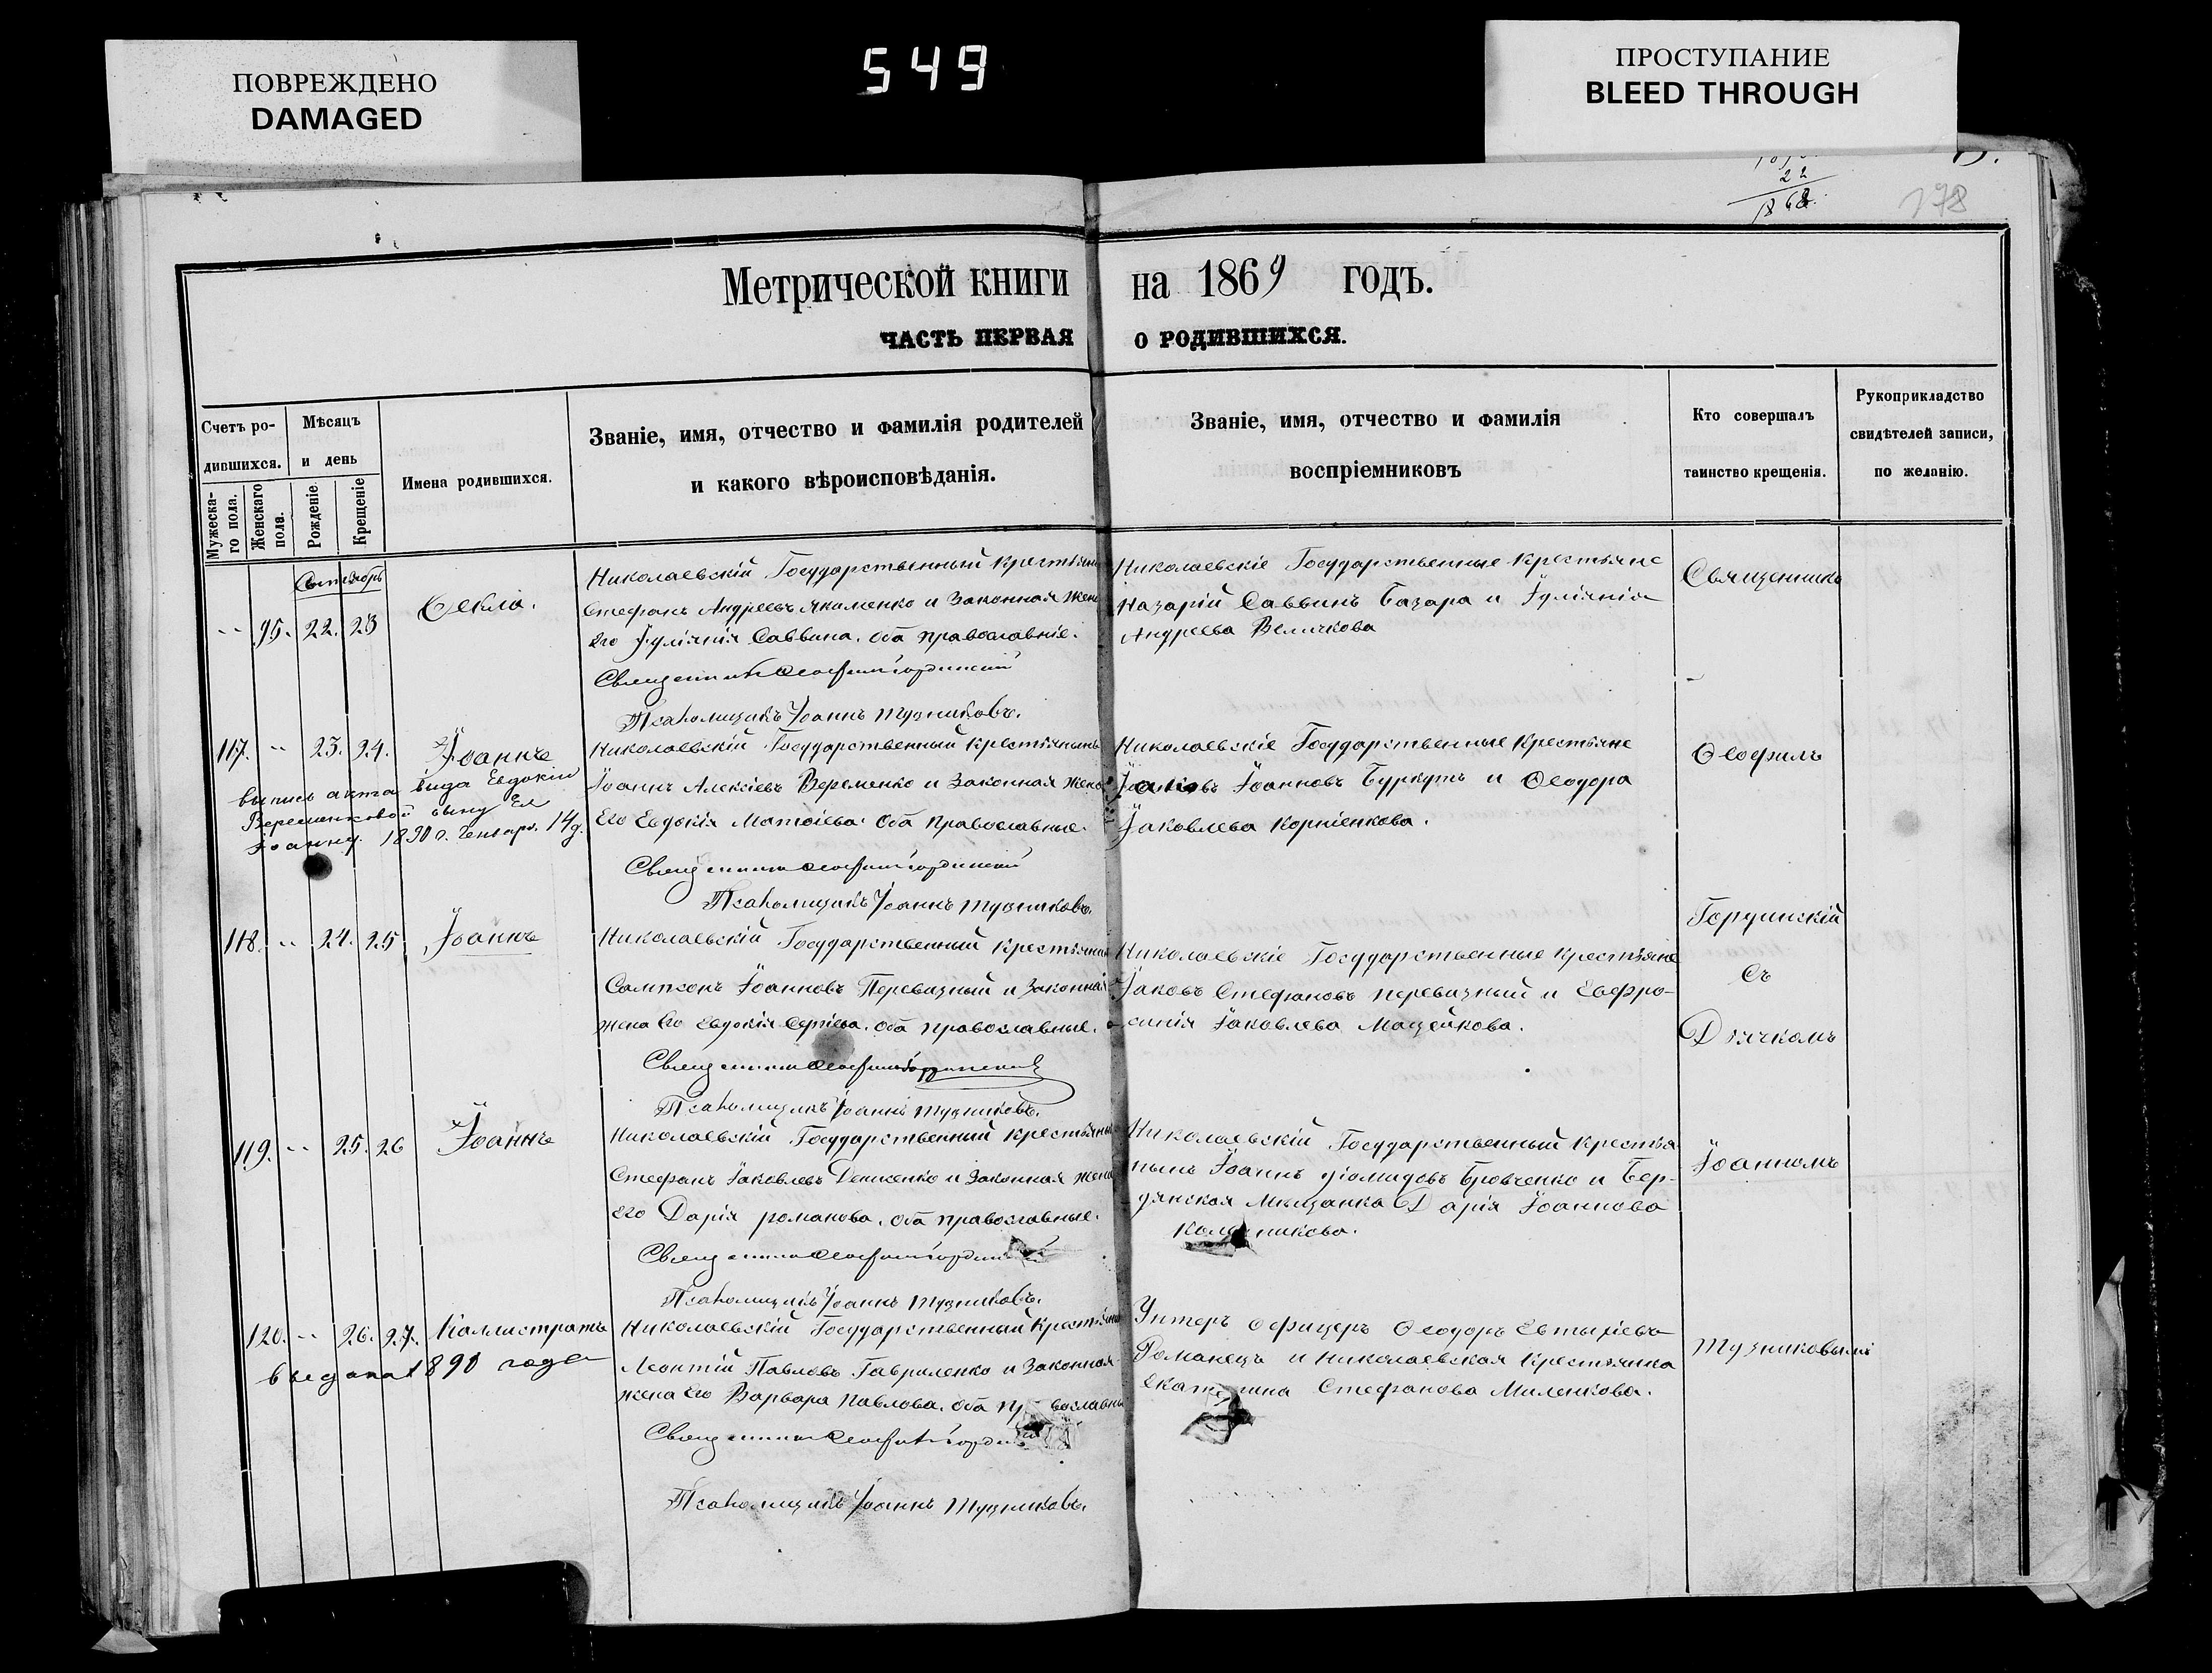 ПОВРЕЖДЕНО
DAMAGED
549
ПРОСТУПАНИЕ
BLEED THROUGH
22
1868.
178
Метрической книги на 1869 годъ.
ЧАСТЬ ПЕРВАЯ О РОДИВШИХСЯ.
Счетъ ро-
дившихся.
Мужеска-
го пола.
Женскаго
пола.
Мѣсяцъ
и день
Рожденіе
Крещеніе
Имена родившихся.
Званіе, имя, отчество и фамилія родителей
и какого вѣроисповѣданія.
Званіе, имя, отчество и фамилія
воспріемниковъ
Кто совершалъ
таинство крещенія.
Рукоприкладство
свидѣтелей записи,
по желанію.
Сентябрь
95. 22. 23
Ѳекла.
Николаевскій Государственный Крестьянинъ
Стефанъ Андреевъ Якименко и Законная Жена
Его Іуліянія Саввина. Оба православніе.
Священникъ Ѳеофилъ Гординскій
Псаломщикъ Іоаннъ Тузниковъ.
Николаевскіе Государственные Крестьяне
Назарій Саввинъ Базара и Іуліянія
Андреева Величкова
117. 23. 24.
Іоаннъ
выпись акта вида Евдокіи
Веременковой сыну Ея
Іоанну. 1890 г. Генваря. 14 д.
Николаевскій Государственный Крестьянинъ
Іоаннъ Алексіевъ Веременко и Законная Жена
Его Евдокія Матѳіева. Оба Православные.
Священникъ Ѳеофилъ Гординскій
Псаломщикъ Іоаннъ Тузниковъ.
Николаевскіе Государственные Крестьяне
Іаковъ Іоанновъ Буркутъ и Ѳеодора
Іаковлева Корніенкова.
118. 24. 25
Іоаннъ
Николаевскій Государственный Крестьянинъ
Сампсонъ Іоанновъ Перевизный и Законная
Жена Его Евдокія Сергіева. Оба православные.
Священникъ Ѳеофилъ Гординскій
Псаломщикъ Іоаннъ Тузниковъ.
Николаевскіе Государственные Крестьяне
Іаковъ Стефановъ Перевизный и Евфро-
синія Іаковлева Мацейкова.
119. 25. 26
Іоаннъ
Николаевскій Государственный Крестьянинъ
Стефанъ Іаковлевъ Денисенко и Законная Жена
Его Дарія Романова. Оба православные.
Священникъ Ѳеофилъ Гординскій
Псаломщикъ Іоаннъ Тузниковъ.
Николаевскій Государственный Крестья
нинъ Іоаннъ Діомидовъ Бровченко и Бер-
дянская Мѣщанка Дарія Іоаннова
120. 26. 27.
Каллистратъ
выдана 1890 года
Николаевскій Государственный Крестьянинъ
Леонтій Павловъ Гавриленко и Законная
жена Его Варвара Павлова. Оба православные
Священникъ Ѳеофилъ Гординскій
Псаломщикъ Іоаннъ Тузниковъ.
Унтеръ Офицеръ Ѳеодоръ Евтыхіевъ
Романецъ и Николаевская Крестьянка
Екатерина Стефанова Миленкова.
Священникъ
Ѳеофилъ
Гординскій
Съ
Дьячкомъ
Іоанномъ
Тузниковымъ